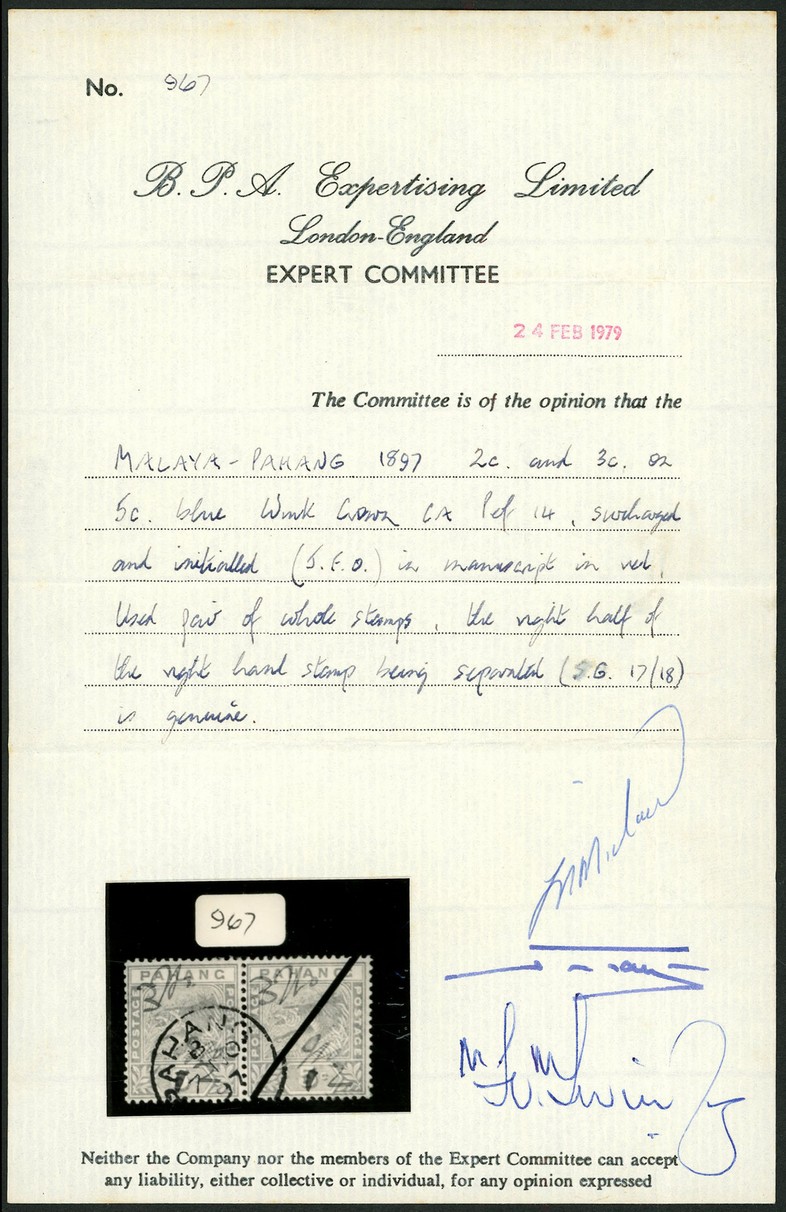 No. 967
B. P. A. Expertising Limited
London-England
EXPERT COMMITTEE
24 FEB 1979
The Committee is of the opinion that the
MALAYA - PAHANG 1897 2c. and 3c. on
5c. blue Wmk Crown CA Perf 14, surcharged
and initialled (J.F.O.) in manuscript in red.
Used pair of whole stamps, the right half of
the right hand stamp being separated (S.G. 17/18)
is genuine.
967
PAHANG PAHANG
POSTAGE
PAHANG
Neither the Company nor the members of the Expert Committee can accept
any liability, either collective or individual, for any opinion expressed